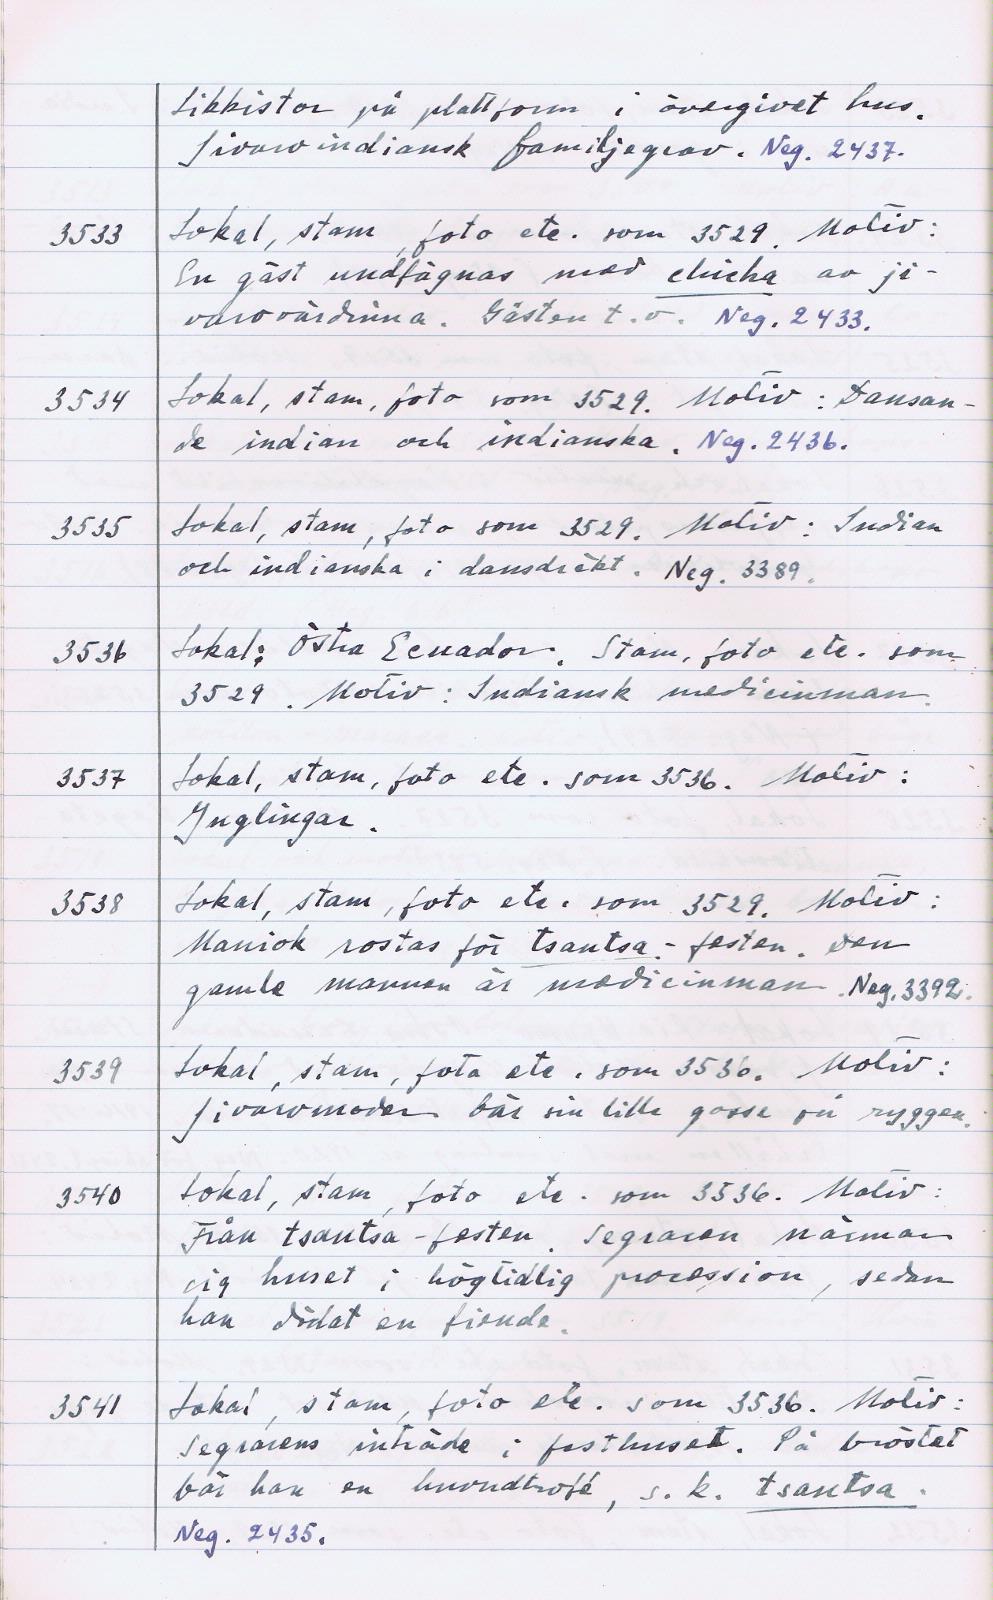 Likkistor på plattform i övergivet hus.
Jivaroindiansk familjegrav. Neg. 2437.
3533 Lokal, stam, foto etc. som 3529. Motiv:
En gäst undfägnas med chicha av ji-
varovärdinna. Gästen t.v. Neg. 2433.
3534 Lokal, stam, foto som 3529. Motiv: Dansan-
de indian och indianska. Neg. 2436.
3535 Lokal, stam, foto som 3529. Motiv: Indian
och indianska i dansdräkt. Neg. 3389.
3536 Lokal: Östra Ecuador. Stam, foto etc. som
3529. Motiv: Indiansk medicinman.
3537 Lokal, stam, foto etc. som 3536. Motiv:
Ynglingar.
3538 Lokal, stam, foto etc. som 3529. Motiv:
Maniok rostas för tsantsa-festen. Den
gamle mannen är medicinman. Neg. 3392.
3539 Lokal, stam, foto etc. som 3536. Motiv:
Jivaromoder bär sin lille gosse på ryggen.
3540 Lokal, stam, foto etc. som 3536. Motiv:
Från tsantsa-festen. Segraren närmar
sig huset i högtidlig procession, sedan
han dödat en fiende.
3541 Lokal, stam, foto etc. som 3536. Motiv:
Segrarens inträde i festhuset. På bröstet
bär han en huvudtrofé, s.k. tsantsa.
Neg. 2435.